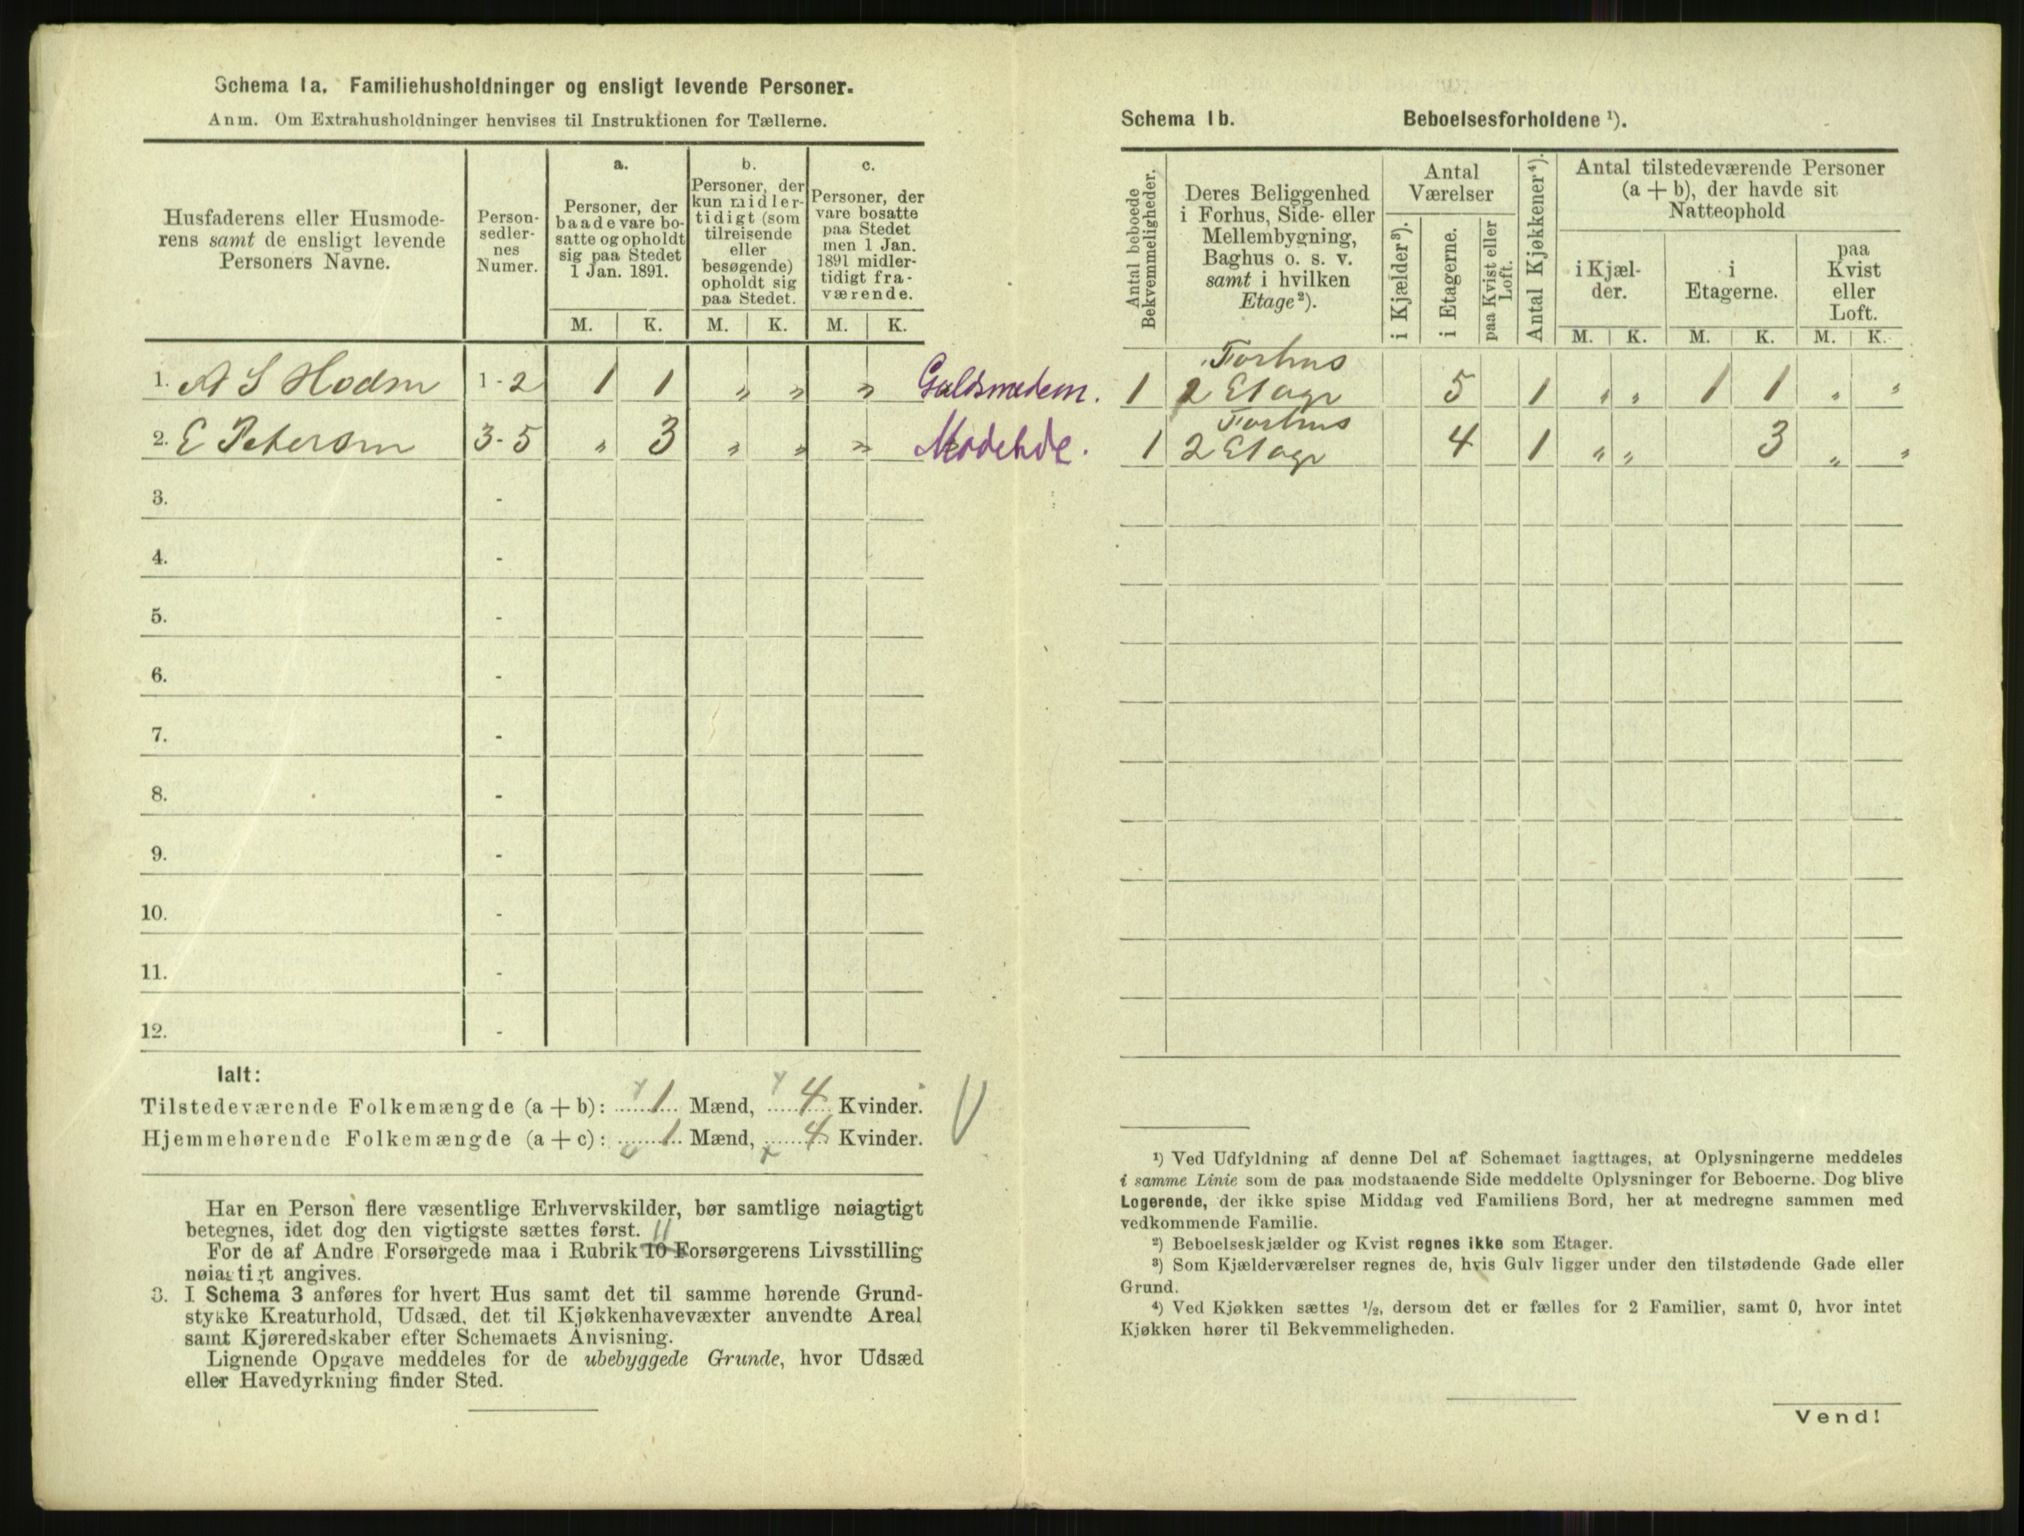 Schema 1a. Familiehusholdninger og ensligt levende Personer.
Anm. Om Extrahusholdninger henvises til Instruktionen for Tællerne.
Husfaderens eller Husmode-
rens samt de ensligt levende
Personers Navne.
Person-
sedler-
nes
Numer.
a.
Personer, der
baade vare bo-
satte og opholdt
sig paa Stedet
1 Jan. 1891.
b.
Personer, der
kun midler-
tidigt (som
tilreisende
eller
besøgende)
opholdt sig
paa Stedet.
c.
Personer, der
vare bosatte
paa Stedet
men 1 Jan.
1891 midler-
tidigt fra-
værende.
M. K. M. K. M. K.
1. A S Hodm 1-2 1 1 „ „ „ Guldsmedem.
2. E Petersm 3-5 „ 3 „ „ „
3. -
4. -
5. -
6. -
7. -
8. -
9. -
10. -
11. -
12. -
Ialt:
Tilstedeværende Folkemængde (a + b): 1 Mænd, 4 Kvinder.
Hjemmehørende Folkemængde (a + c): 1 Mænd, 4 Kvinder.
Har en Person flere væsentlige Erhvervskilder, bør samtlige nøiagtigt
betegnes, idet dog den vigtigste sættes først.
11
For de af Andre Forsørgede maa i Rubrik 10 Forsørgerens Livsstilling
nøiagtigt angives.
3. I Schema 3 anføres for hvert Hus samt det til samme hørende Grund-
stykke Kreaturhold, Udsæd, det til Kjøkkenhavevæxter anvendte Areal
samt Kjøreredskaber efter Schemaets Anvisning.
Lignende Opgave meddeles for de ubebyggede Grunde, hvor Udsæd
eller Havedyrkning finder Sted.
Schema 1b. Beboelsesforholdene ¹).
Antal beboede
Bekvemmeligheder.
Deres Beliggenhed
i Forhus, Side- eller
Mellembygning,
Baghus o. s. v.
samt i hvilken
Etage²).
Antal
Værelser
i Kjælder³).
i Etagerne.
paa Kvist eller
Loft.
Antal Kjøkkener⁴).
Antal tilstedeværende Personer
(a + b), der havde sit
Natteophold
i Kjæl-
der.
i
Etagerne.
paa
Kvist
eller
Loft.
M. K. M. K. M. K.
Forhus
1 2 Etage 5 1 „ „ 1 1 „ „
Forhus
1 2 Etage 4 1 „ „ 3 „ „
¹) Ved Udfyldning af denne Del af Schemaet iagttages, at Oplysningerne meddeles
i samme Linie som de paa modstaaende Side meddelte Oplysninger for Beboerne. Dog blive
Logerende, der ikke spise Middag ved Familiens Bord, her at medregne sammen med
vedkommende Familie.
²) Beboelseskjælder og Kvist regnes ikke som Etager.
³) Som Kjælderværelser regnes de, hvis Gulv ligger under den tilstødende Gade eller
Grund.
⁴) Ved Kjøkken sættes ½, dersom det er fælles for 2 Familier, samt 0, hvor intet
Kjøkken hører til Bekvemmeligheden.
Vend!